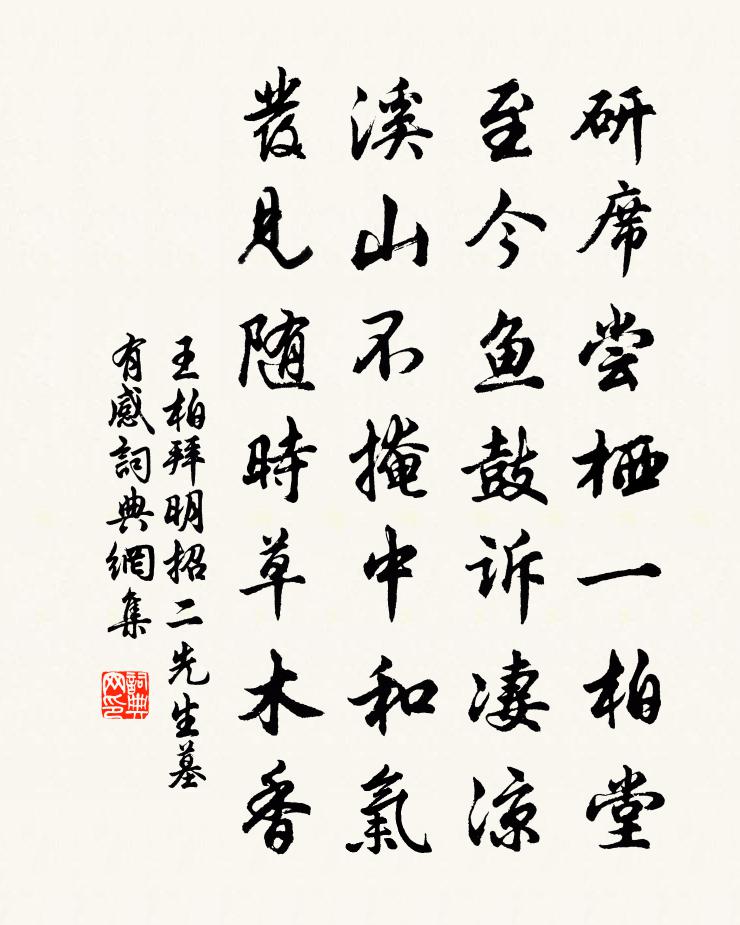 研席尝栖一柏堂
至今鱼鼓诉凄凉
溪山不掩中和氣
發见随時草木香
王柏拜明招二先生墓
有感詞典網集
詞典
网印